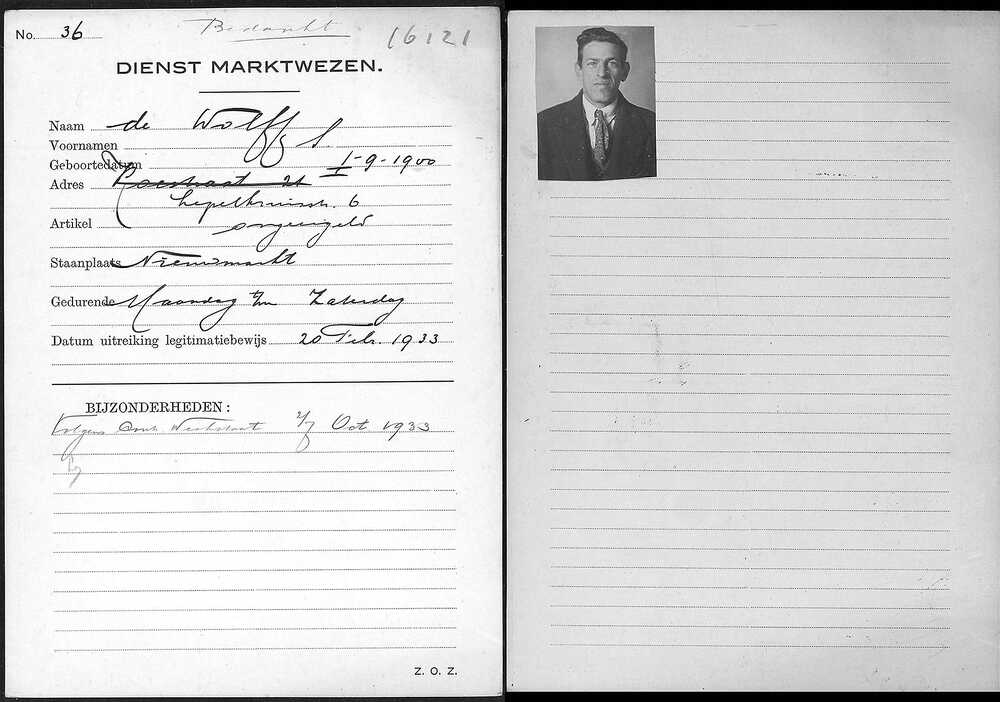 No. 36
Bedankt
16121
DIENST MARKTWEZEN.
Naam de Wolff S.
Voornamen
Geboortedatum 1-9-1900
Adres
Lepelkruisstr. 6
Artikel ongeregeld
Staanplaats Nieuwmarkt
Gedurende Maandag t/m Zaterdag
Datum uitreiking legitimatiebewijs 20 Febr. 1933
BIJZONDERHEDEN:
Volgens Oct. 1933
Z. O. Z.